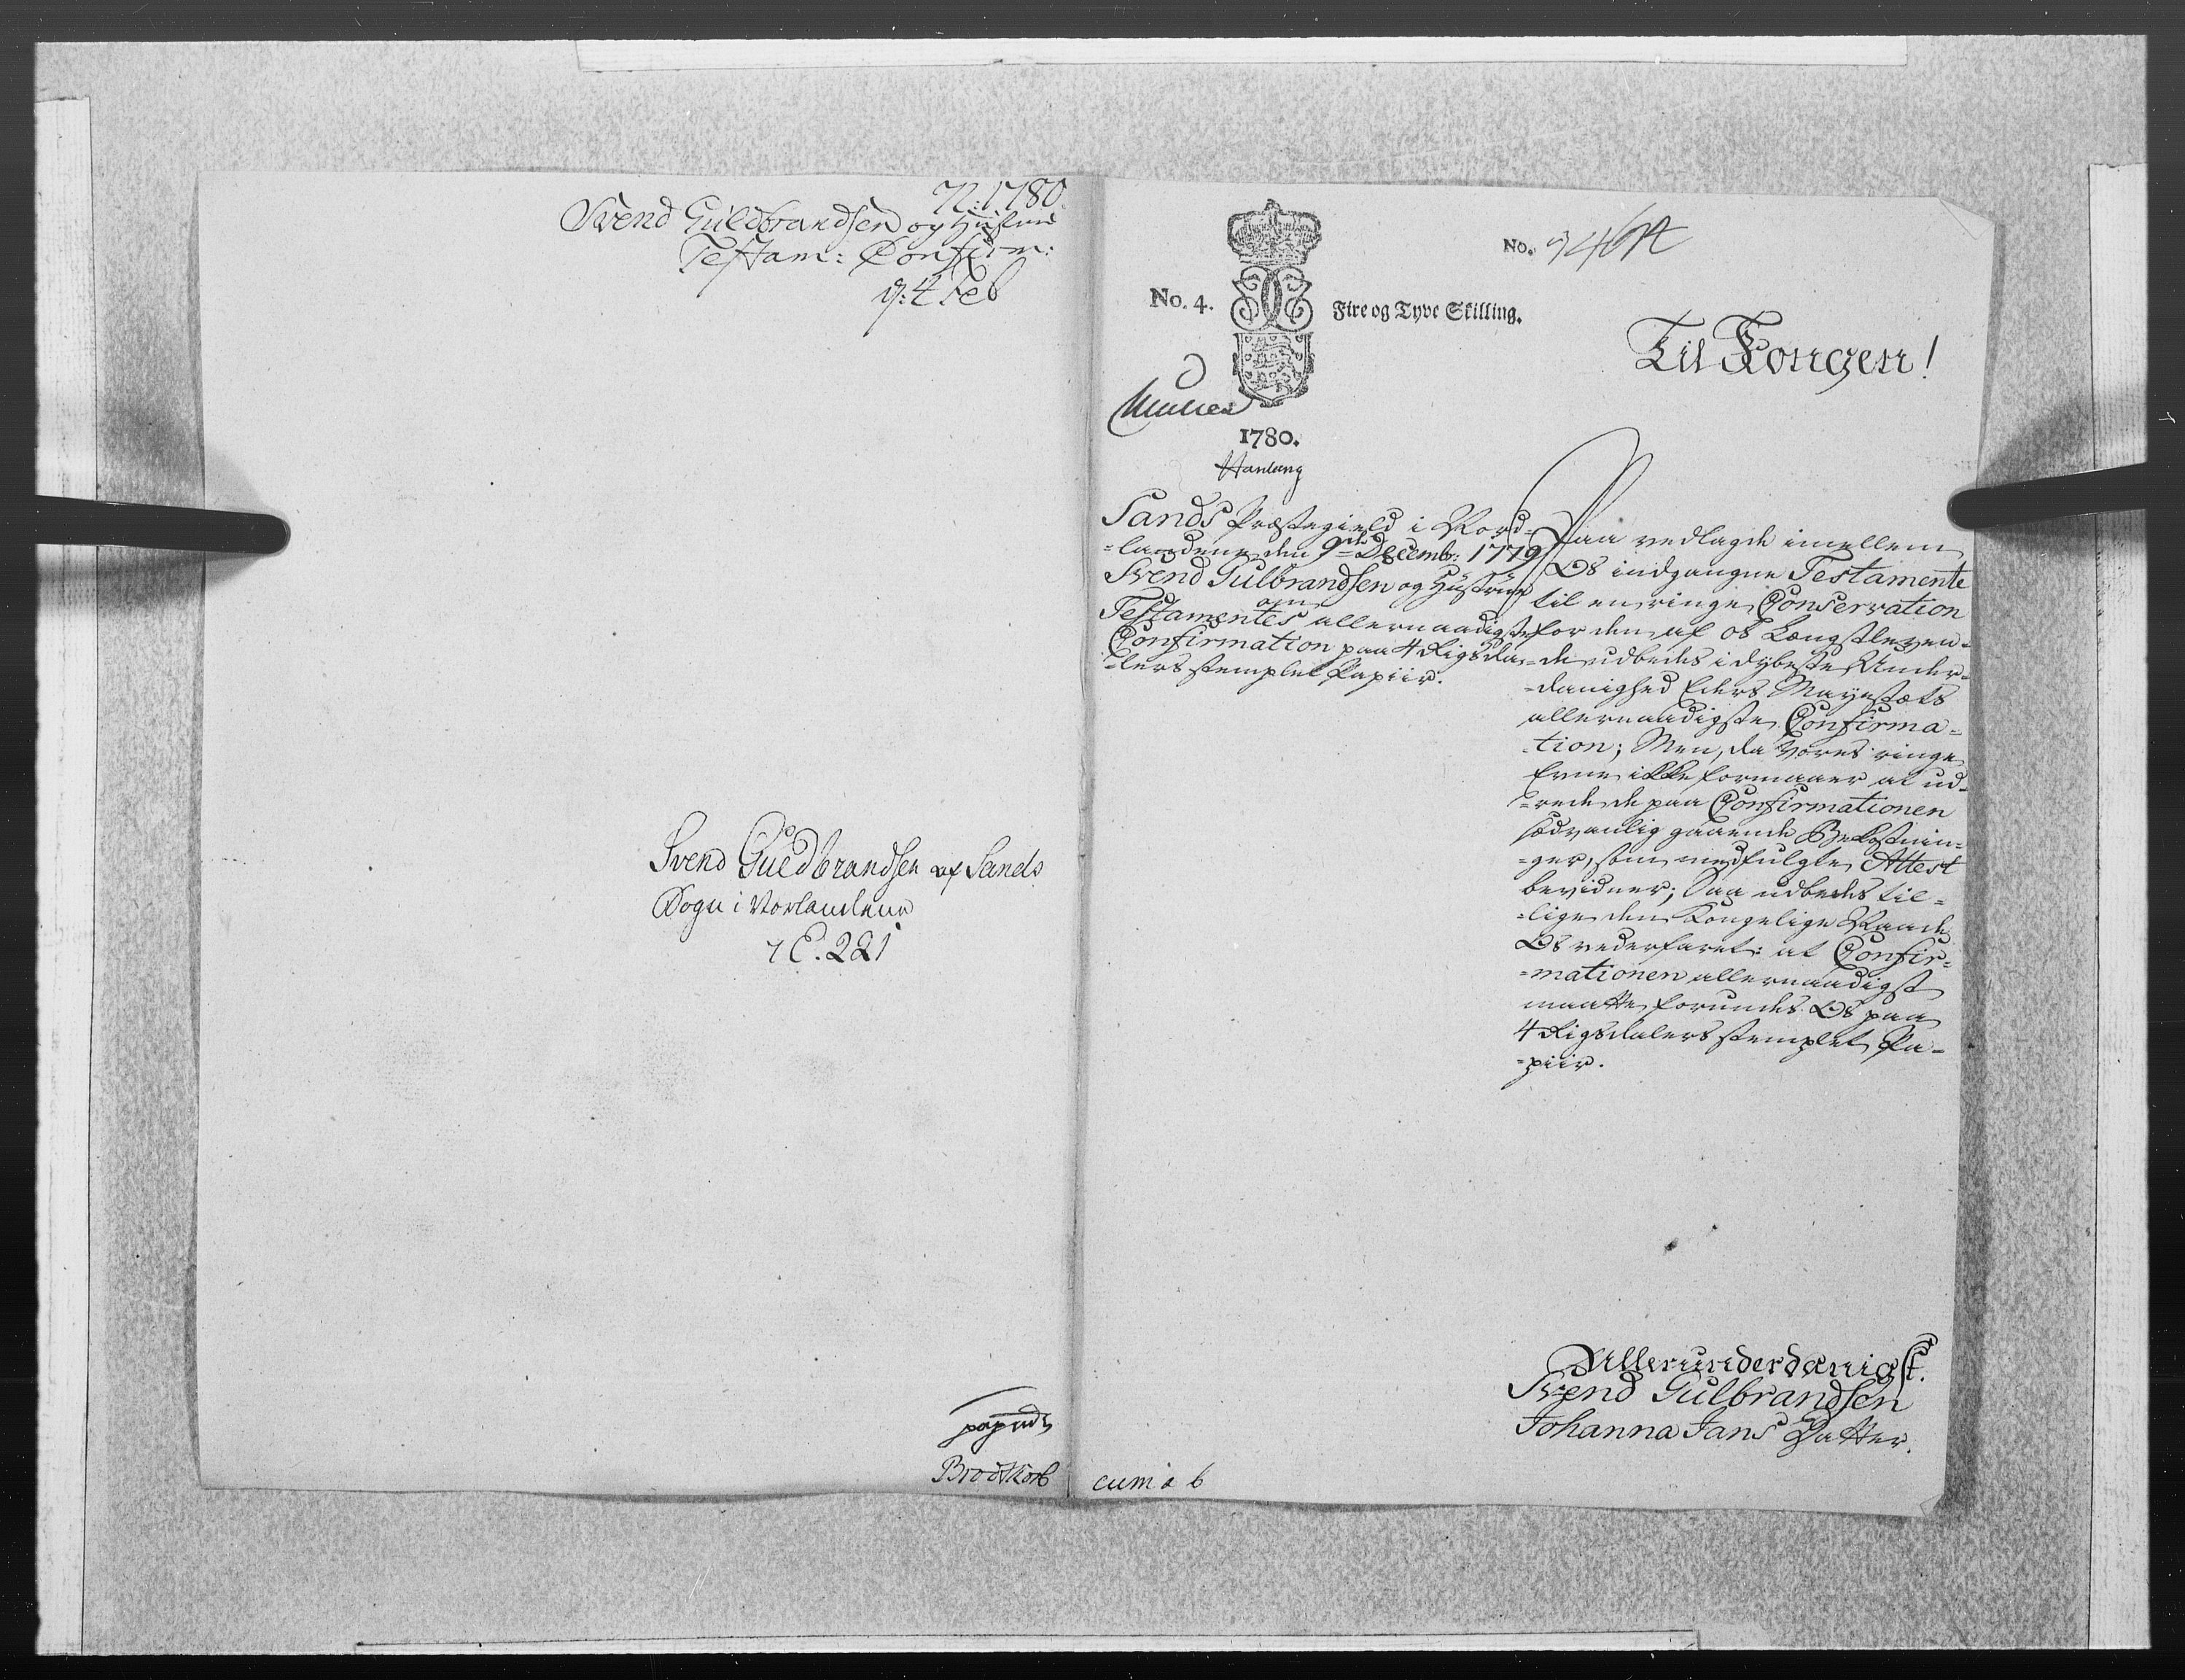 N: 1780
Svend Guldbrandsen og Hustrue
Testam: Confirm:
d: 4 Feb
Svend Guldbrandsen af Sands
Sogn i Norlandene
E. 221
Brodtkorb
cum a b
No. 4.
Fire og Tyve Skilling.
No.
Til Kongen!
1780.
Sands Præstegield i Nord-
-landene den 9de Decemb: 1779
Svend Gulbrandsen og Hustrue
om
Testamentes allernaadigste
Confirmation paa 4 Rigsda-
-lers stemplet Papiir.
Paa vedlagde imellem
Os indgangne Testamente
til en ringe Conservation
for den af os Længstleven-
-de udbedes i dybeste Under-
-danighed Eders Mayestæts
allernaadigste Confirma-
-tion; Men, da Vores ringe
Evne ikke formaaer at ud-
-rede de paa Confirmationen
sædvanlig gaaende Bekostnin-
-ger, som medfulgte Attest
bevidner; Saa udbedes til-
-lige den Kongelige Naade
Os vederfaret: at Confir-
-mationen allernaadigst
maatte forundes Os paa
4 Rigsdalers stemplet Pa-
-piir.
Allerunderdanigst.
Svend Gulbrandsen
Johanna Jans Datter.